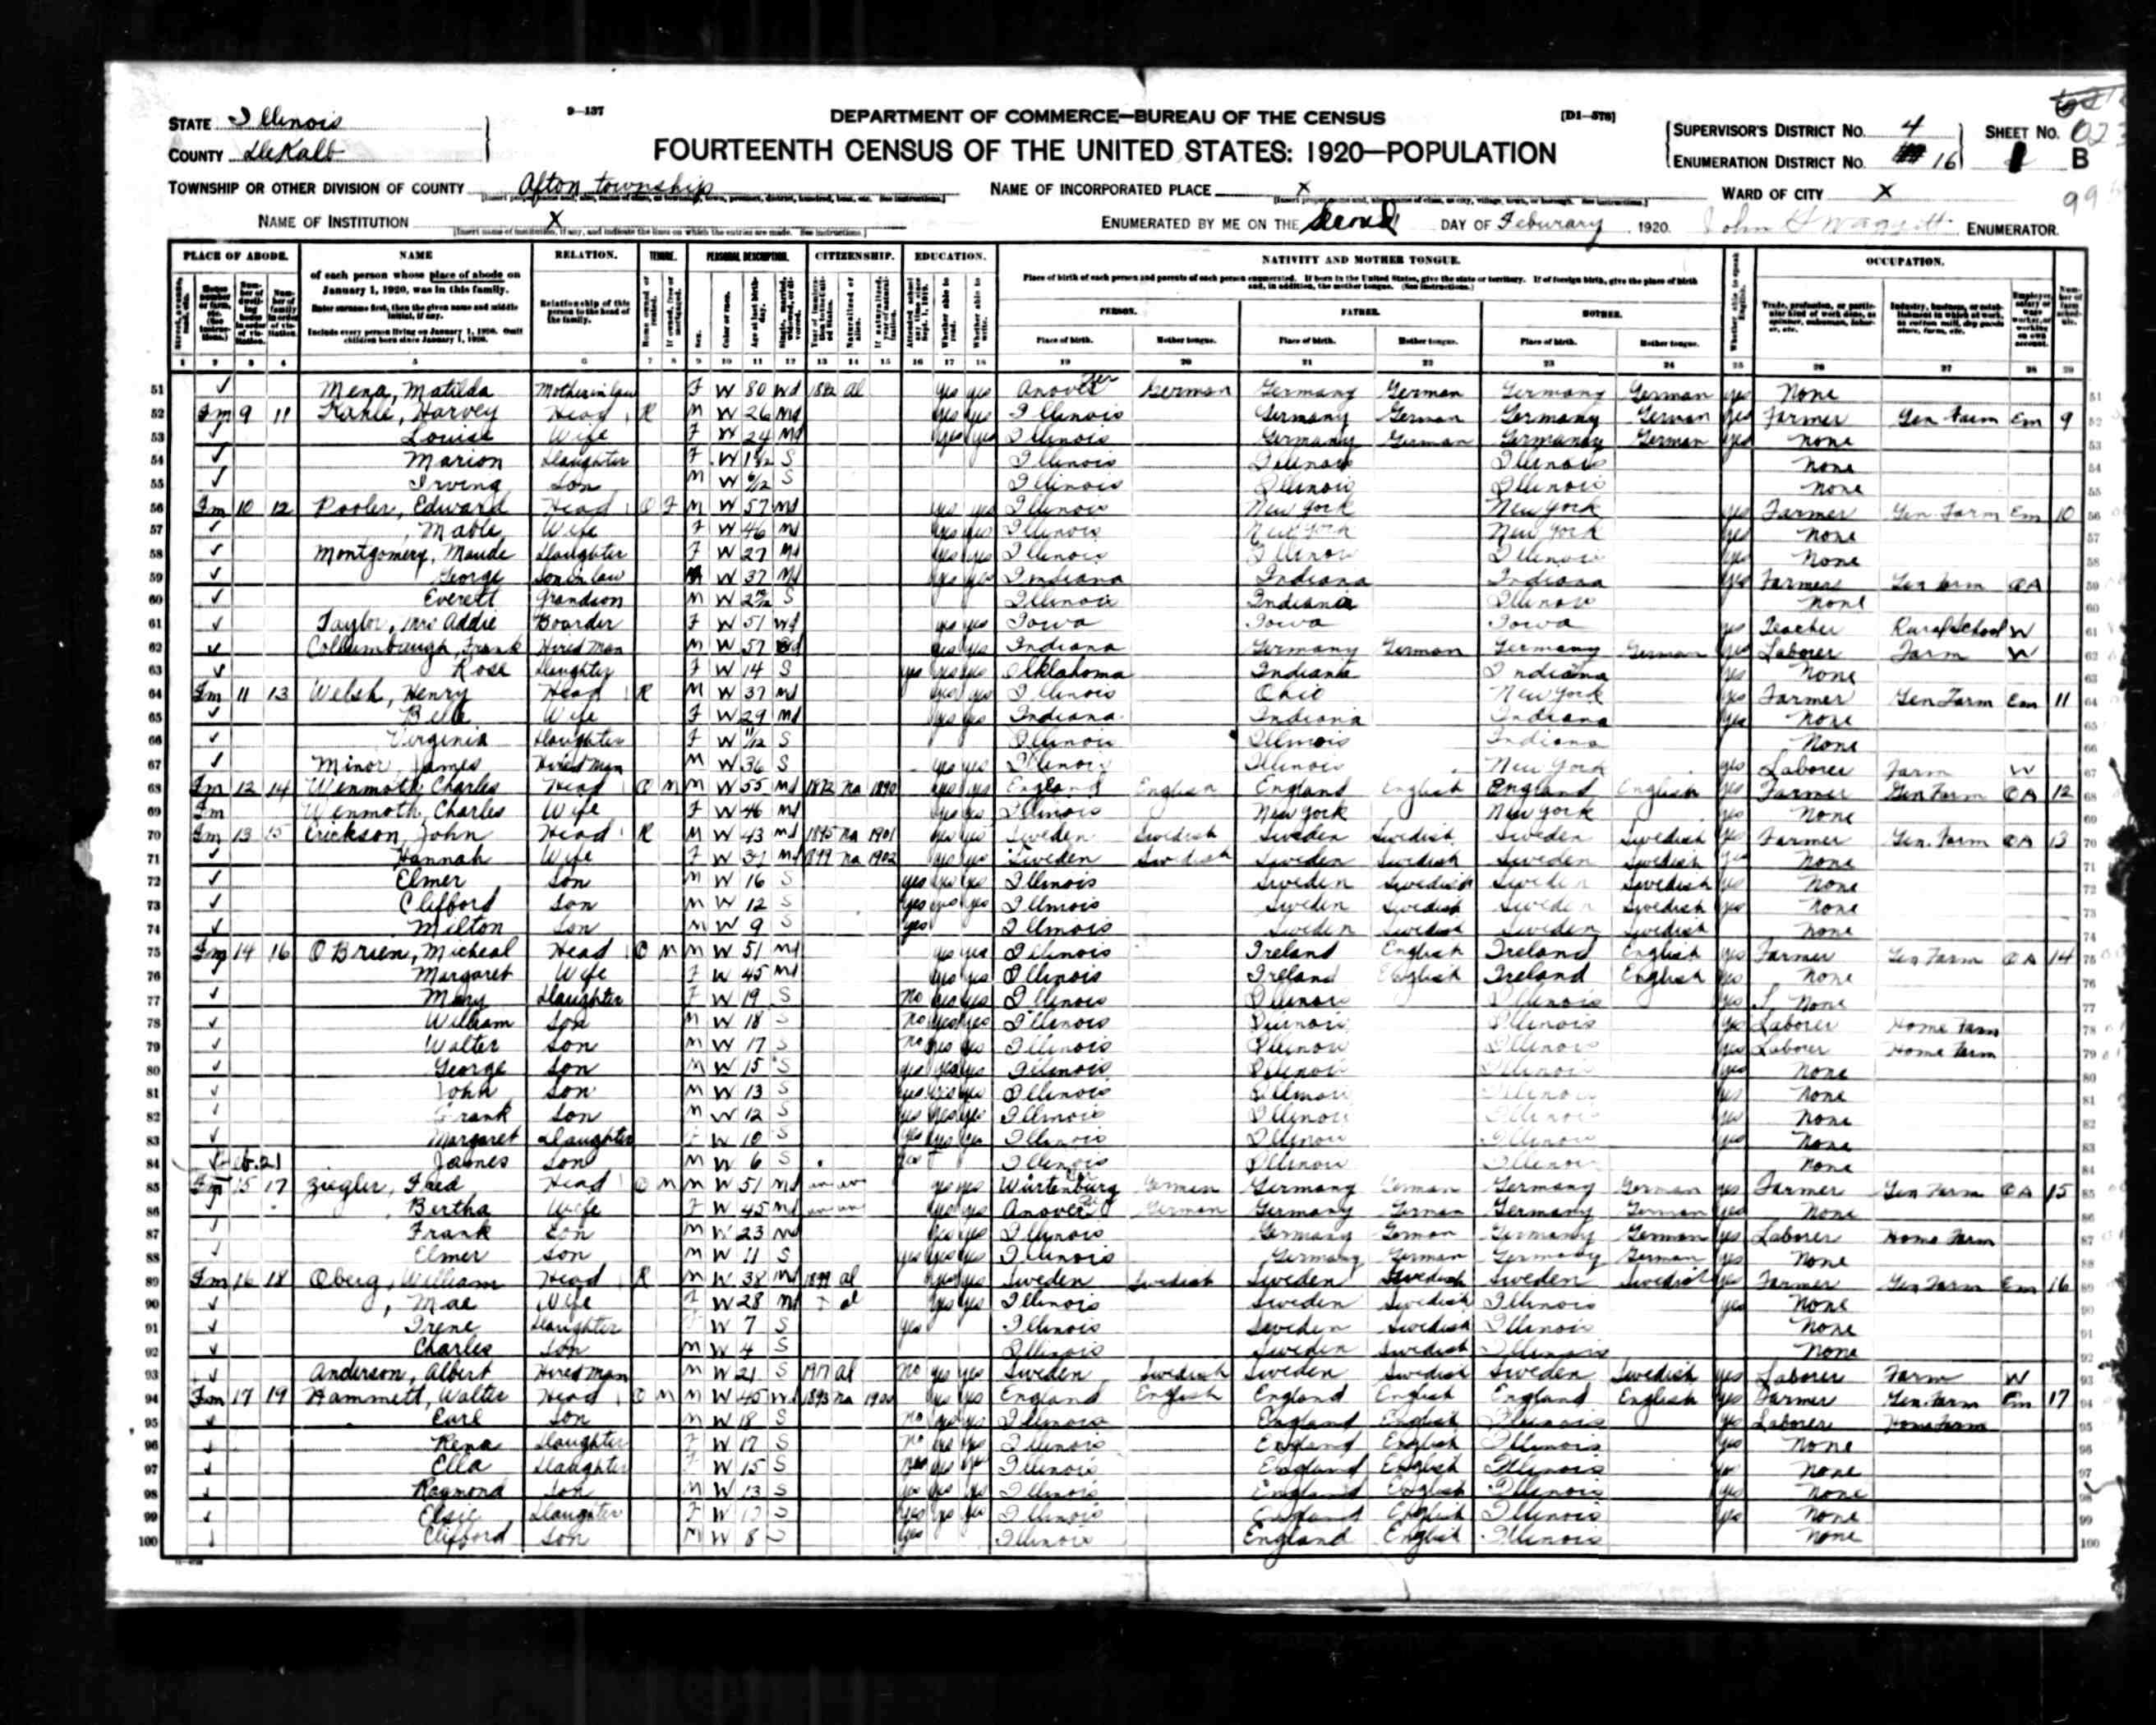 9—137
DEPARTMENT OF COMMERCE—BUREAU OF THE CENSUS
[D1—578]
STATE Illinois
COUNTY DeKalb
FOURTEENTH CENSUS OF THE UNITED STATES: 1920—POPULATION
SUPERVISOR'S DISTRICT No. 4
ENUMERATION DISTRICT No. 16
SHEET No. 1 B
TOWNSHIP OR OTHER DIVISION OF COUNTY Afton township
NAME OF INCORPORATED PLACE X
WARD OF CITY X
NAME OF INSTITUTION X
ENUMERATED BY ME ON THE Second DAY OF Feburary, 1920. John ENUMERATOR.
PLACE OF ABODE. NAME RELATION. TENURE. PERSONAL DESCRIPTION. CITIZENSHIP. EDUCATION. NATIVITY AND MOTHER TONGUE. OCCUPATION.
of each person whose place of abode on January 1, 1920, was in this family.
Enter surname first, then the given name and middle initial, if any.
Include every person living on January 1, 1920. Omit children born since January 1, 1920.
Relationship of this person to the head of the family.
Place of birth of each person and parents of each person enumerated. If born in the United States, give the state or territory. If of foreign birth, give the place of birth and, in addition, the mother tongue. (See instructions.)
PERSON. FATHER. MOTHER.
Place of birth. Mother tongue. Place of birth. Mother tongue. Place of birth. Mother tongue.
1 2 3 4 5 6 7 8 9 10 11 12 13 14 15 16 17 18 19 20 21 22 23 24 25 26 27 28 29
51 Mena, Matilda Mother in law F W 80 Wd 1882 Al yes yes Anover German Germany German Germany German yes None
52 Fm 9 11 Harvey Head R M W 26 Md yes yes Illinois Germany German Germany German yes Farmer Gen Farm Em 9
53 Louise Wife F W 24 Md yes yes Illinois Germany German Germany German yes none
54 Marion Daughter F W S Illinois Illinois Illinois None
55 Irving Son M W S Illinois Illinois Illinois None
56 Fm 10 12 Pooler, Edward Head O F M W 57 Md yes yes Illinois New York New York yes Farmer Gen. Farm Em 10
57 Mable Wife F W 46 Md yes yes Illinois New York New York yes None
58 Montgomery, Maude Daughter F W 27 Md yes yes Illinois Illinois Illinois yes None
59 George Son in law M W 37 Md yes yes Indiana Indiana Indiana yes Farmer Gen Farm OA
60 Everett Grandson M W S Illinois Indiana Illinois None
61 Taylor, Mrs Addie Boarder F W 51 Wd yes yes Iowa Iowa Iowa yes Teacher Rural School W
62 Collumbaugh, Frank Hired Man M W 57 yes yes Indiana Germany German Germany German yes Laborer Farm W
63 Rose Daughter F W 14 S yes yes yes Olklahoma Indiana Indiana yes None
64 Fm 11 13 Welsh, Henry Head R M W 37 Md yes yes Illinois Ohio New York yes Farmer Gen Farm Em 11
65 Belle Wife F W 29 Md yes yes Indiana Indiana Indiana yes None
66 Virginia Daughter F W 11/12 S Illinois Illinois Indiana None
67 Minor, James Hired man M W 36 S yes yes Illinois Illinois New York yes Laborer Farm W
68 Fm 12 14 Wenmoth, Charles Head O M M W 55 Md 1872 Na 1890 yes yes England English England English England English yes Farmer Gen Farm OA 12
69 Fm Wenmoth, Charles Wife F W 46 Md yes yes Illinois New York New York yes None
70 Fm 13 15 Erickson, John Head R M W 43 Md 1895 Na 1901 yes yes Sweden Swedish Sweden Swedish Sweden Swedish yes Farmer Gen. Farm OA 13
71 Hannah Wife F W 37 Md 1899 Na 1902 yes yes Sweden Swedish Sweden Swedish Sweden Swedish yes None
72 Elmer Son M W 16 S yes yes yes Illinois Sweden Swedish Sweden Swedish yes None
73 Clifford Son M W 12 S yes yes yes Illinois Sweden Swedish Sweden Swedish yes None
74 Milton Son M W 9 S yes Illinois Sweden Swedish Sweden Swedish None
75 Fm 14 16 O Brien, Micheal Head O M M W 51 Md yes yes Illinois Ireland English Ireland English yes Farmer Gen Farm OA 14
76 Margaret Wife F W 45 Md yes yes Illinois Ireland English Ireland English yes None
77 Mary Daughter F W 19 S No yes yes Illinois Illinois Illinois yes None
78 William Son M W 18 S No yes yes Illinois Illinois Illinois yes Laborer Home Farm
79 Walter Son M W 17 S No yes yes Illinois Illinois Illinois yes Laborer Home Farm
80 George Son M W 15 S yes yes yes Illinois Illinois Illinois yes None
81 John Son M W 13 S yes yes yes Illinois Illinois Illinois yes None
82 Frank Son M W 12 S yes yes yes Illinois Illinois Illinois yes None
83 Margaret Daughter F W 10 S yes yes yes Illinois Illinois Illinois yes None
84 James Son M W 6 S yes Illinois Illinois Illinois None
85 Fm 15 17 Ziegler, Fred Head O M M W 51 Md un un yes yes Würtenburg German Germany German Germany German yes Farmer Gen Farm OA 15
86 Bertha Wife F W 45 Md un un yes yes Anover German Germany German Germany German yes None
87 Frank Son M W 23 Md yes yes Illinois Germany German Germany German yes Laborer Home Farm
88 Elmer Son M W 11 S yes yes yes Illinois Germany German Germany German yes None
89 Fm 16 18 Oberg, William Head R M W 38 Md 1899 al yes yes Sweden Swedish Sweden Swedish Sweden Swedish yes Farmer Gen Farm Em 16
90 , Mae Wife F W 28 Md al yes yes Illinois Sweden Swedish Illinois yes None
91 Irene Daughter F W 7 S yes Illinois Sweden Swedish Illinois None
92 Charles Son M W 4 S Illinois Sweden Swedish Illinois None
93 Anderson, Albert Hired man M W 21 S 1917 Al No yes yes Sweden Swedish Sweden Swedish Sweden Swedish yes Laborer Farm W
94 Fm 17 19 Hammett, Walter Head O M M W 45 Wd 1893 Na yes yes England English England English England English yes Farmer Gen. Farm Em 17
95 Earl Son M W 18 S No yes yes Illinois England English Illinois yes Laborer Home Farm
96 Rena Daughter F W 17 S No yes yes Illinois England English Illinois yes None
97 Ella Daughter F W 15 S yes yes Illinois England English Illinois yes None
98 Raymond Son M W 13 S yes yes yes Illinois England English Illinois yes None
99 Elsie Daughter F W S yes yes yes Illinois England English Illinois yes None
100 Clifford Son M W 8 S yes Illinois England English Illinois None